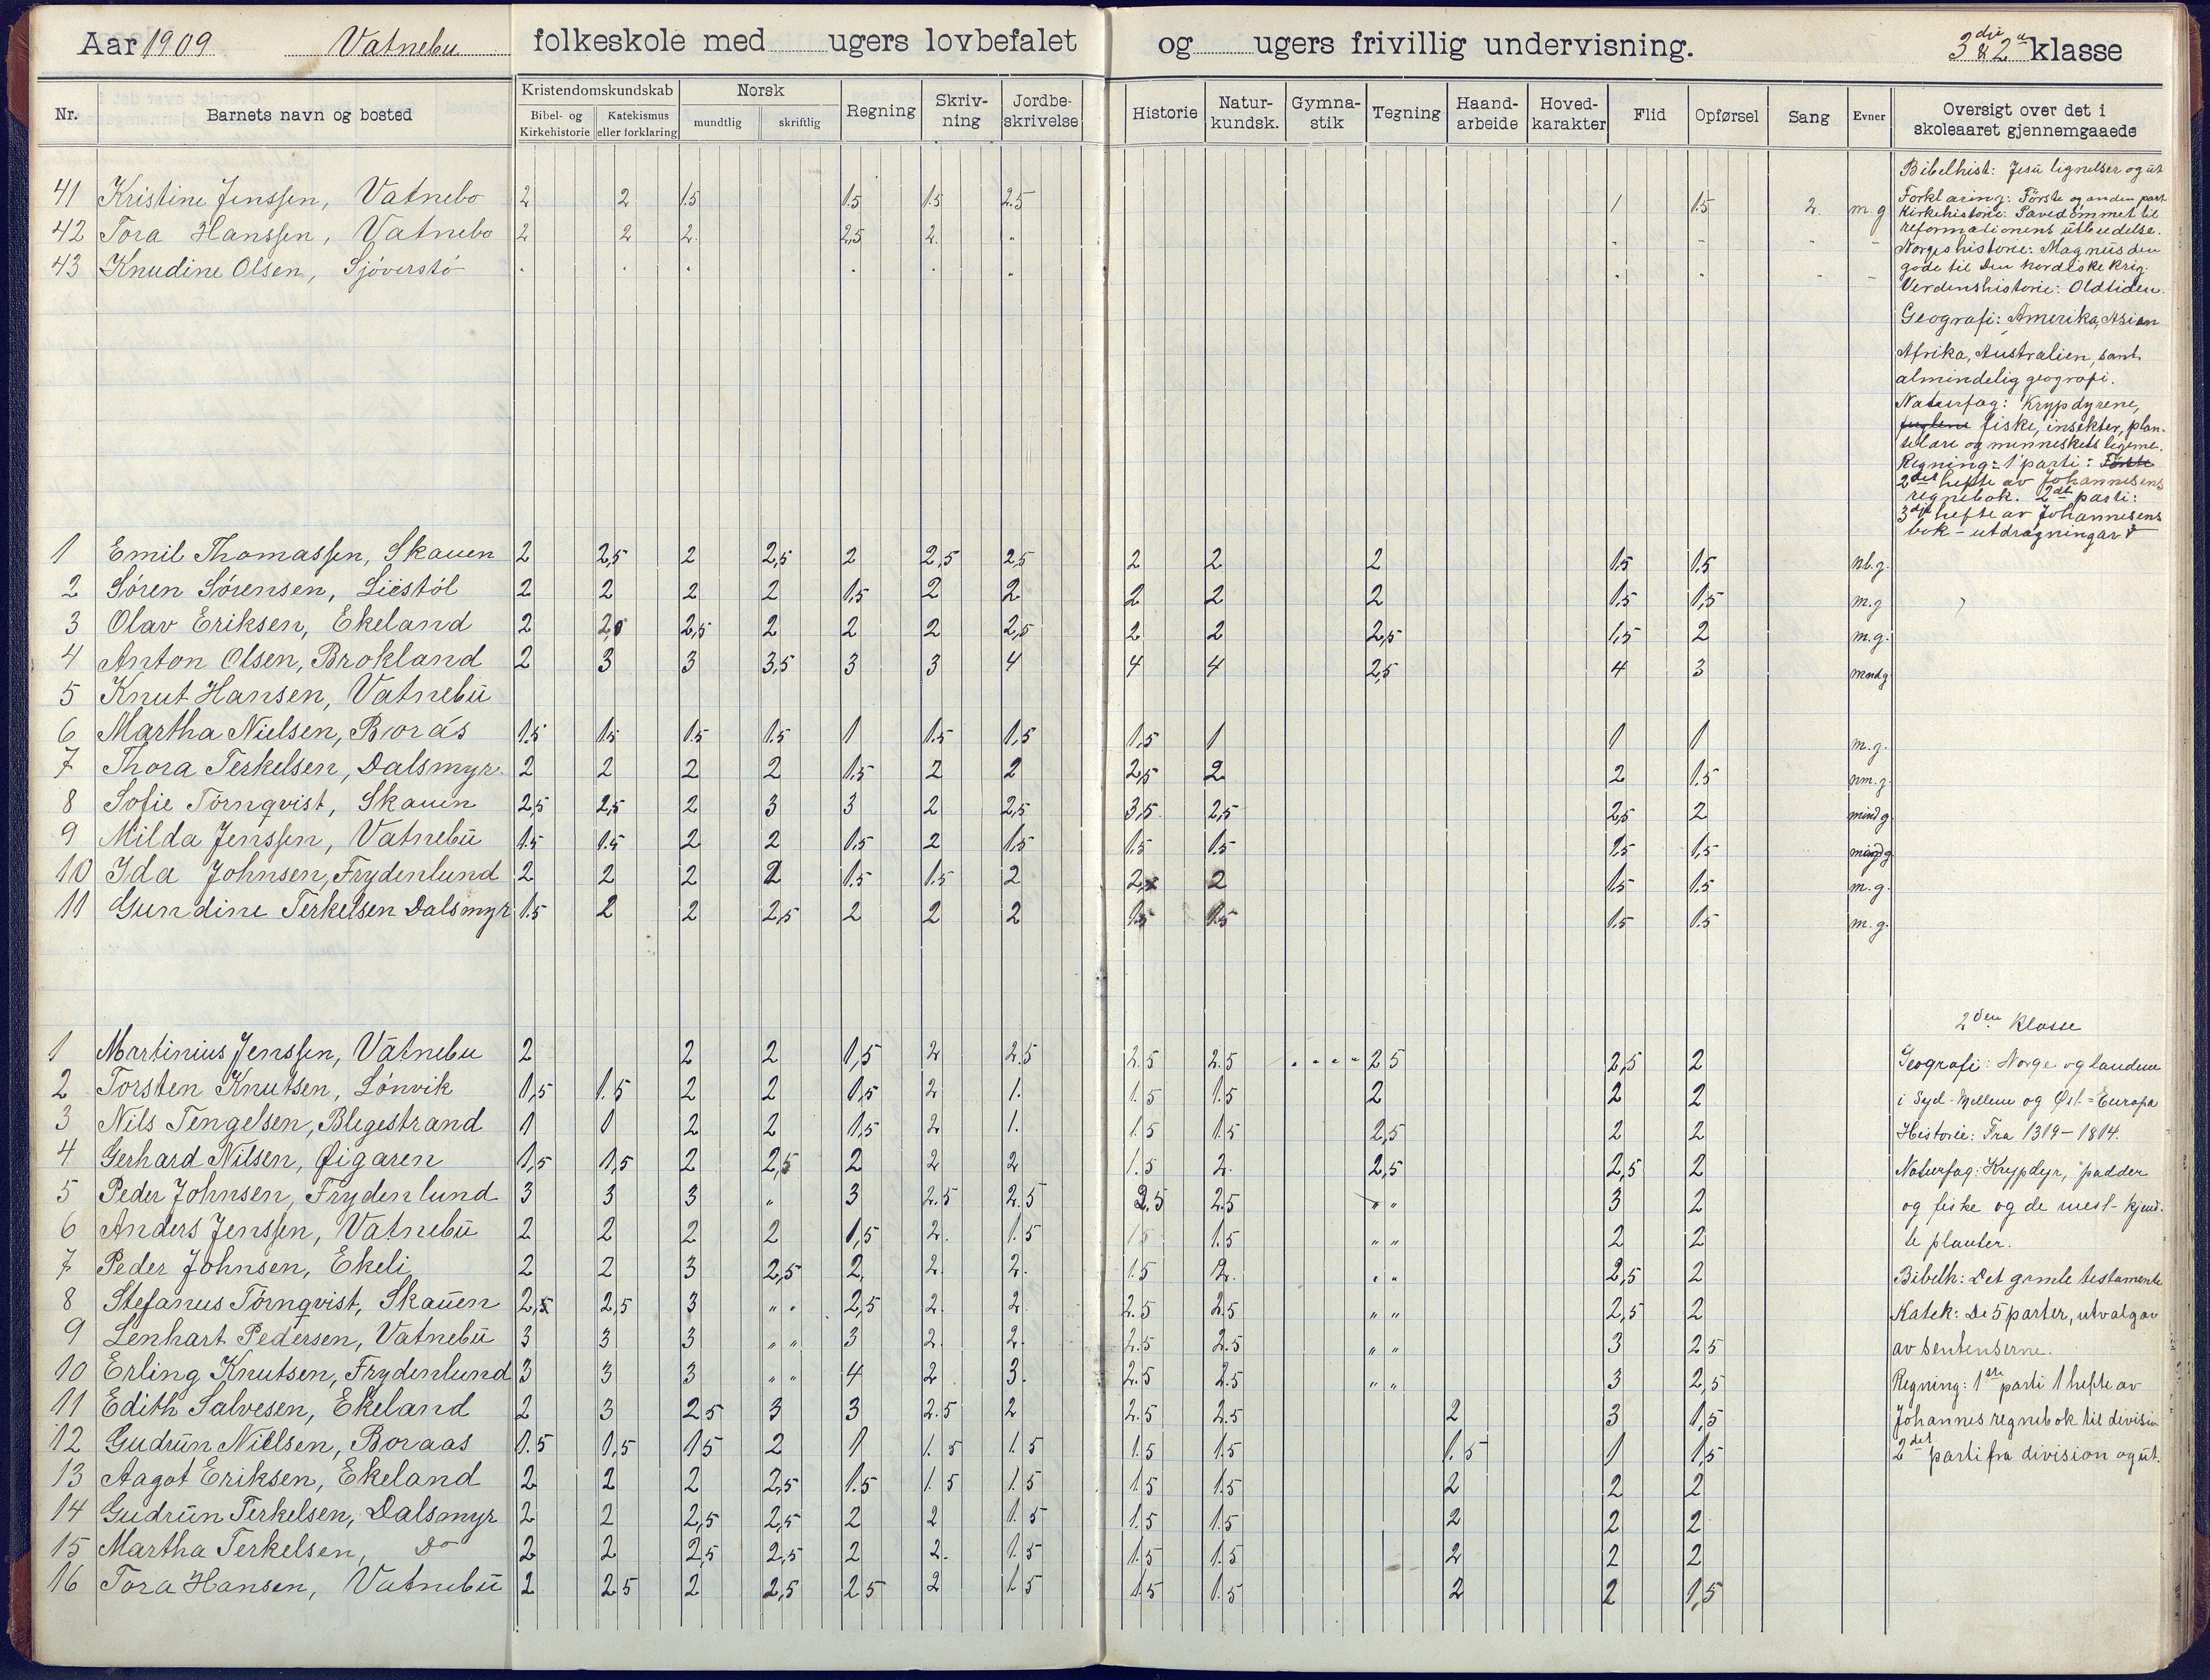 Aar 1909 Vatnebu folkeskole med ugers lovbefalet og ugers frivillig undervisning. 3die & 2n klasse
Nr. Barnets navn og bosted Kristendomskundskab Norsk Regning Skriv-ning Jordbe-skrivelse Historie Natur-kundsk. Gymna-stik Tegning Haand-arbeide Hoved-karakter Flid Opførsel Sang Evner Oversigt over det i skoleaaret gjennemgaaede
Bibel- og Kirkehistorie Katekismus eller forklaring mundtlig skriftlig
41 Kristine Jenssen, Vatnebo 2 2 1.5 1.5 1.5 2.5 1 1.5 2. m.g.
42 Tora Hanssen, Vatnebo 2 2 2. 2,5 2. "
43 Knudine Olsen, Sjöverstö
Bibelhist: Jesu lignelser og ut
Forklaring: Förste og anden part
Kirkehistorie: Pavedömmet til
reformationens utbredelse.
Norgeshistorie: Magnus den
gode til Den nordiske krig.
Verdenshistorie: Oldtiden.
Geografi: Amerika, Asien
Afrika, Australien, samt
almindelig geografi.
Naturfag: Krypdyrene,
fuglene fiske, insekter, plan-
telære og menneskets legeme.
Regning: 1 parti: Förste
2det hefte av Johannesens
regnebok. 2det parti:
3dje hefte av Johannesens
bok - utdragningar
1 Emil Thomassen, Skauen 2 2,5 2 2,5 2 2,5 2,5 2 2 2 1.5 1.5 nb.g.
2 Sören Sörensen, Liestöl 2 2 2 2 1,5 2 2 2 2 2 1.5 1,5 m.g
3 Olav Eriksen, Ekeland 2 2,5 2,5 2 2 2 2,5 2 2 2,5 1,5 2 m.g.
4 Anton Olsen, Brokland 2 3 3 3,5 3 3 4 4 4 2,5 4 3 mndg
5 Knut Hansen, Vatnebu
6 Martha Nielsen, Borås 1.5 1.5 1.5 1.5 1 1.5 1,5 1,5 1 1 1 m.g.
7 Thora Terkelsen, Dalsmyr. 2 2 2 2 1.5 2 2 2,5 2 2 1.5 nm.g.
8 Sofie Törnqvist, Skauen 2,5 2,5 2 3 3 2 2,5 3,5 2,5 2,5 2 mindg
9 Milda Jenssen, Vatnebu 1.5 1.5 2 2 1.5 2 1.5 1.5 1.5 1.5 1,5
10 Ida Johnsen, Frydenlund 2 2 2 2 1.5 1.5 2 2 2 1.5 1.5 m.g.
11 Gundine Terkelsen Dalsmyr 1.5 2 2 2,5 2 2 2 1.5 1.5 1.5 1.5 m.g.
2den klasse
1 Martinius Jenssen, Vatnebu 2 2 2 1,5 2 2.5 2.5 2.5 2 5 2,5 2
2 Torsten Knutsen, Lönvik 1,5 1.5 2 2 1,5 2 1. 1.5 1.5 2 2 2
3 Nils Tengelsen, Blegestrand 1 1 2 2 1,5 2 1. 1.5 1.5 2,5 2 2
4 Gerhard Nilsen, Øigaren 1,5 1,5 2 2,5 2 2 2 1.5 2. 2,5 2,5 2
5 Peder Johnsen, Frydenlund 3 3 3 " 3 2.5 2.5 2.5 2.5 " " 3 2
6 Anders Jenssen, Vatnebu 2 2 2 2 1,5 2. 1.5 1 5 1.5 " " 2 2
7 Peder Johnsen, Ekeli 2 2 3 2,5 2 2. 2. 1.5 2. " " 2,5 2
8 Stefanus Törnqvist, Skauen 2,5 2,5 3 " " 2,5 2. 2 2.5 2.5 " " 2,5 2
9 Lenhart Pedersen, Vatnebu 3 3 3 " " 3 2. 2. 2.5 2.5 " " 3 2 5
10 Erling Knutsen, Frydenlund 3 3 3 " " 4 2 3. 2.5 2.5 " " 3 2,5
11 Edith Salvesen, Ekeland 2 3 2 5 3 3 2.5 2 2.5 2.5 2 3 1,5
12 Gudrun Nielsen, Boraas 1.5 1,5 1 5 2 1 1. 5 1. 5 1.5 1.5 1.5 1 1,5
13 Aagot Eriksen, Ekeland 2 2 2 2,5 1.5 1. 5 1. 5 1.5 1.5 2 2 2
14 Gudrun Terkelsen, Dalsmyr 2 2 2,5 2,5 2 2 1.5 1.5 1.5 2 2 2
15 Martha Terkelsen, Do 2 2 2,5 2,5 2 2. 1.5 1.5 1.5 2 2 2
16 Tora Hansen, Vatnebu 2 2 5 2 2,5 2 5 2 1 5 1.5 1.5 2 2 1,5
Geografi: Norge og landene
i Syd- Mellem og Øst-Europa
Historie: Fra 1319-1814.
Naturfag: Krypdyr, padder
og fiske og de mest kjend-
te planter.
Bibelh: Det gamle testamente
Katek: De 5 parter, utvalg av
av sentenserne.
Regning: 1ste parti 1 hefte av
Johannes regnebok til division
2det parti fra division og ut.